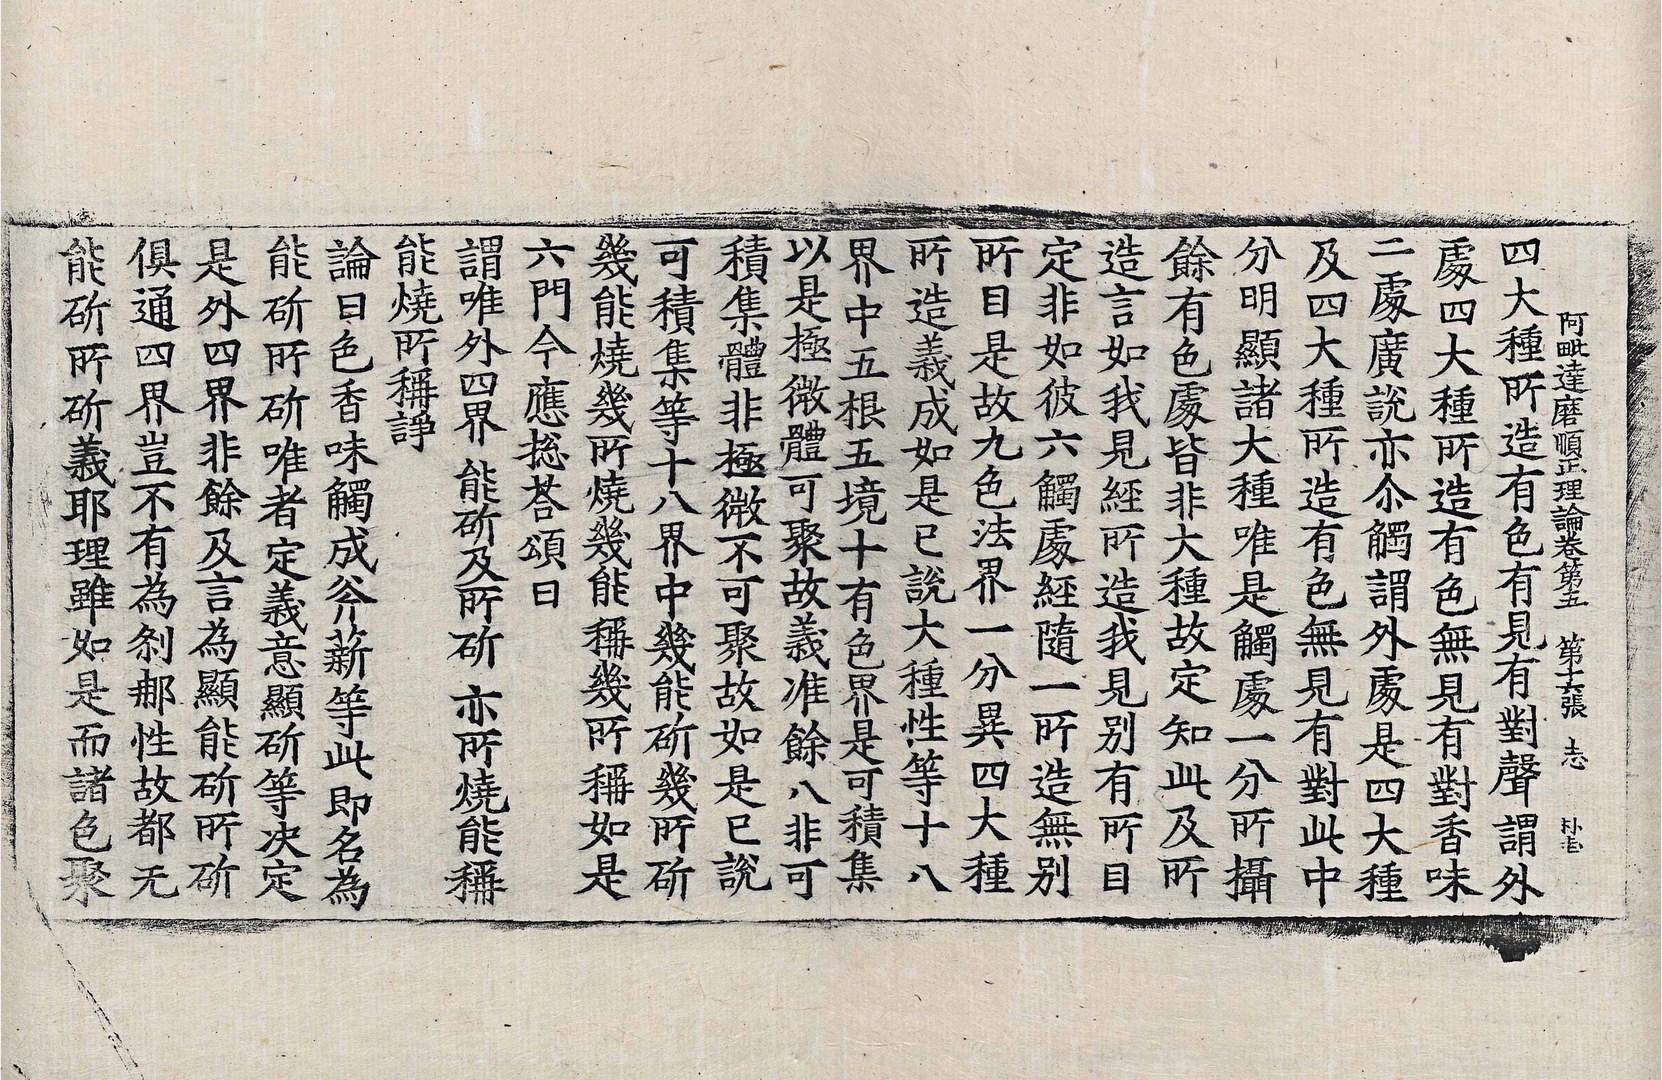 阿毗達磨順正理論卷第五 第十六張 志
四大種所造有色有見有對聲謂外
處四大種所造有色無見有對香味
二處廣說亦尒觸謂外處是四大種
及四大種所造有色無見有對此中
分明顯諸大種唯是觸處一分所攝
餘有色處皆非大種故定知此及所
造言如我見經所造我見別有所目
定非如彼六觸處經隨一所造無別
所目是故九色法界一分異四大種
所造義成如是已說大種性等十八
界中五根五境十有色界是可積集
以是極微體可聚故義准餘八非可
積集體非極微不可聚故如是已說
可積集等十八界中幾能斫幾所斫
幾能燒幾所燒幾能稱幾所稱如是
六門今應摠荅頌曰
謂唯外四界 能斫及所斫 亦所燒能稱
能燒所稱諍
論曰色香味觸成斧薪等此即名為
能斫所斫唯者定義意顯斫等決定
是外四界非餘及言為顯能斫所斫
俱通四界豈不有為剎那性故都无
能斫所斫義耶理雖如是而諸色聚